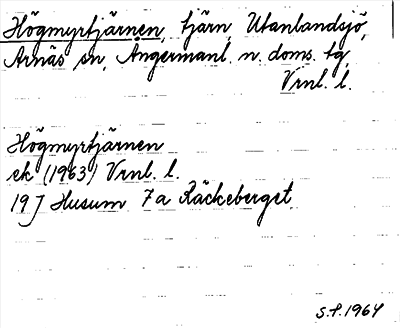 Högmyrtjärnen, tjärn, Utanlandsjö,
Arnäs sn, Ångermanl. n. doms. tg,
Vrnl. l.
Högmyrtjärnen
ek (1963) Vrnl. l.
19 J Husum 7a Räckeberget.
S.P. 1964